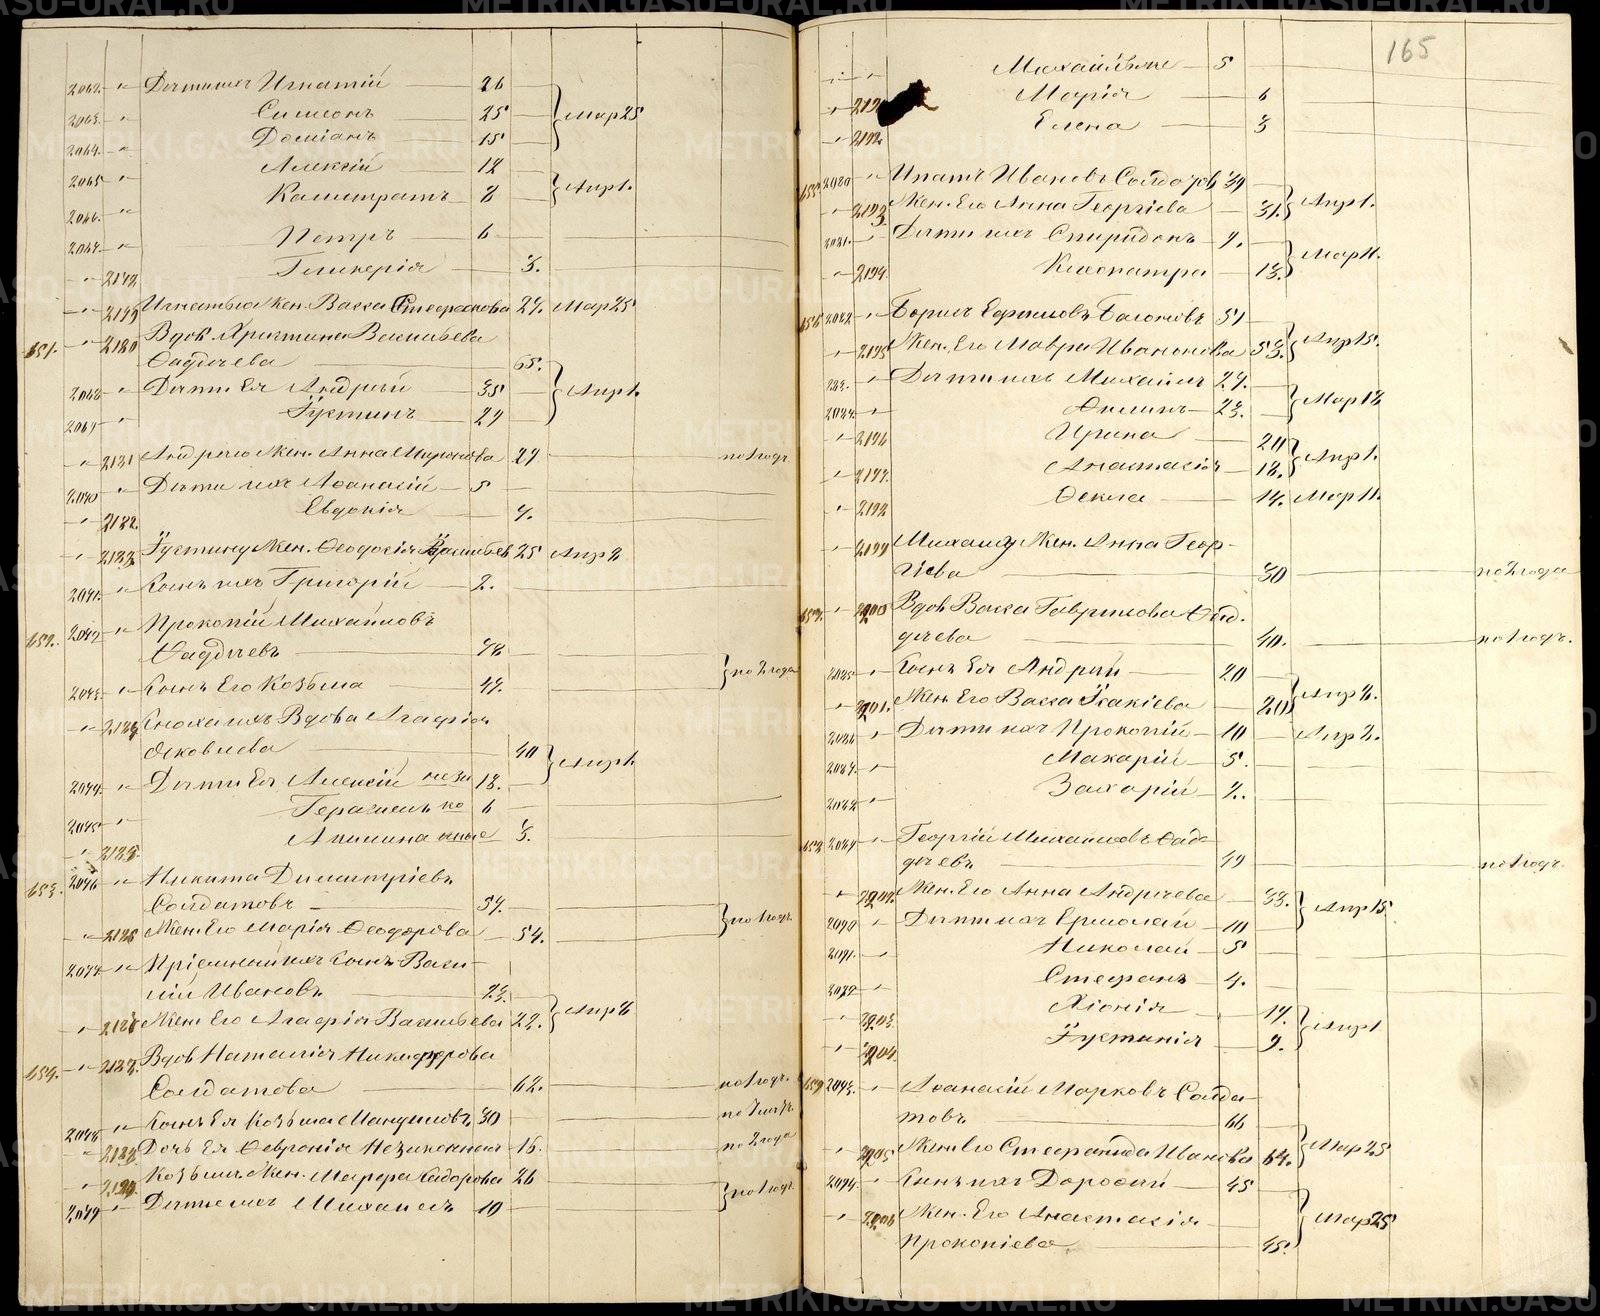 2062. " Дети ихъ Игнатій 26
2063. " Симеонъ 25 } Мар 25
2064. " Доміанъ 15
2065 " Алексій 12
2066. " Калистратъ 8 } Апр 1.
2067. " Петръ 6
" 2178 Гликерія 3.
" 2179 Игнатья Жен. Васса Стефанова 27. Мар 25
651. " 2180 Вдов. Христина Васильева
Фадѣева 65.
2068 " Дѣти Ея Андрей 35 } Апр 1.
2069 " Іустинъ 29
" 2181 Андрею Жен. Анна Миронова 29 по 1 годъ
2070 " Дѣти ихъ Афанасій 5
" 2182. Евдокія 7.
" 2183. Іустину Жен. Феодосія Васильев 25 Апр 8
2071. " Сынъ ихъ Григорій 2.
652. 2072 " Прокопій Михайловъ
Фаддѣевъ 78
2073. " Сынъ Его Козьма 47. } по 2 года
" 2184 Сноха ихъ Вдова Агафія
Яковлева 40 } Апр 1.
2074. " Дѣти Ея Алексій неза 18.
2075 " Герасимъ ко 6
" 2185. Акилина нные 3.
653. 2076 " Никита Димитріевъ
Солдатовъ 57. } по 1 годъ
" 2186 Жен. Его Марія Феодорова 54.
2077 " Пріемный ихъ Сынъ Васи-
лій Ивановъ 23. } Апр 8
" Жен Его Агафія Васильева 22.
654. " Вдов Наталія Никифорова
Солдатова 62. по 1 годъ.
2078 " Сынъ Ея Козьма 30
" Дочь Ея Февронія Незаконная 16. по 2 года
" Козьмы Жен. Марфа Сидорова 26 } по 1 годъ
2079 " Дѣти ихъ Михаилъ 10
165
Михайлы 5
" Марія 6
" 2192. Елена 3
655 2080 " Ипатъ Ивановъ Солдатовъ 39 } Апр 1.
" 2193 Жен. Его Анна Георгіева 31.
2081. " Дѣти ихъ Спиридонъ 7. } Мар 11.
" 2194. Клеопатра 13.
656 2082 " Борисъ Ефимовъ 51 } Апр 15.
" 2195 Жен. Его Мавра 53.
" Дѣти ихъ Михаилъ 27. } Мар 18
2084. " Филипъ 23.
" 2196 Ирина 20 } Апр 1.
" 2197. Анастасія 18.
" 2198 Фекла 14. Мар 11.
" 2199 Михаилу Жен. Анна Геор-
гіева 30 по 2 года
657. " 2200 Вдов Васса Гаврилова Фад-
дѣева 40. по 1 годъ.
2085 " Сынъ Ея Андрей 20 } Апр 8.
" 2201. Жен. Его Васса Исакіева 20
2086 " Дѣти ихъ Прокопій 10 Апр 8.
2087. " Макарій 5.
2088 " Захарій 2.
658 2089 " Георгій Михайловъ Фад-
дѣевъ 49 по 1 годъ.
" 2202. Жен. Его Анна Андреева 33. } Апр 15
2090 " Дѣти ихъ Ермолай 10
2091. " Николай 5
2092 " Стефанъ 4.
" 2203. Хіонія 17. } Апр 1
" 2204. Іустинія 9.
659 2093. " Афанасій Марковъ Солда-
товъ 66 } Мар 25
" 2205 Жен Его Степанида Иванова 64.
2094. " Сынъ ихъ Дорофей 45 } Мар 25
" 2206 Жен. Его Анастасія
Прокопіева 45.